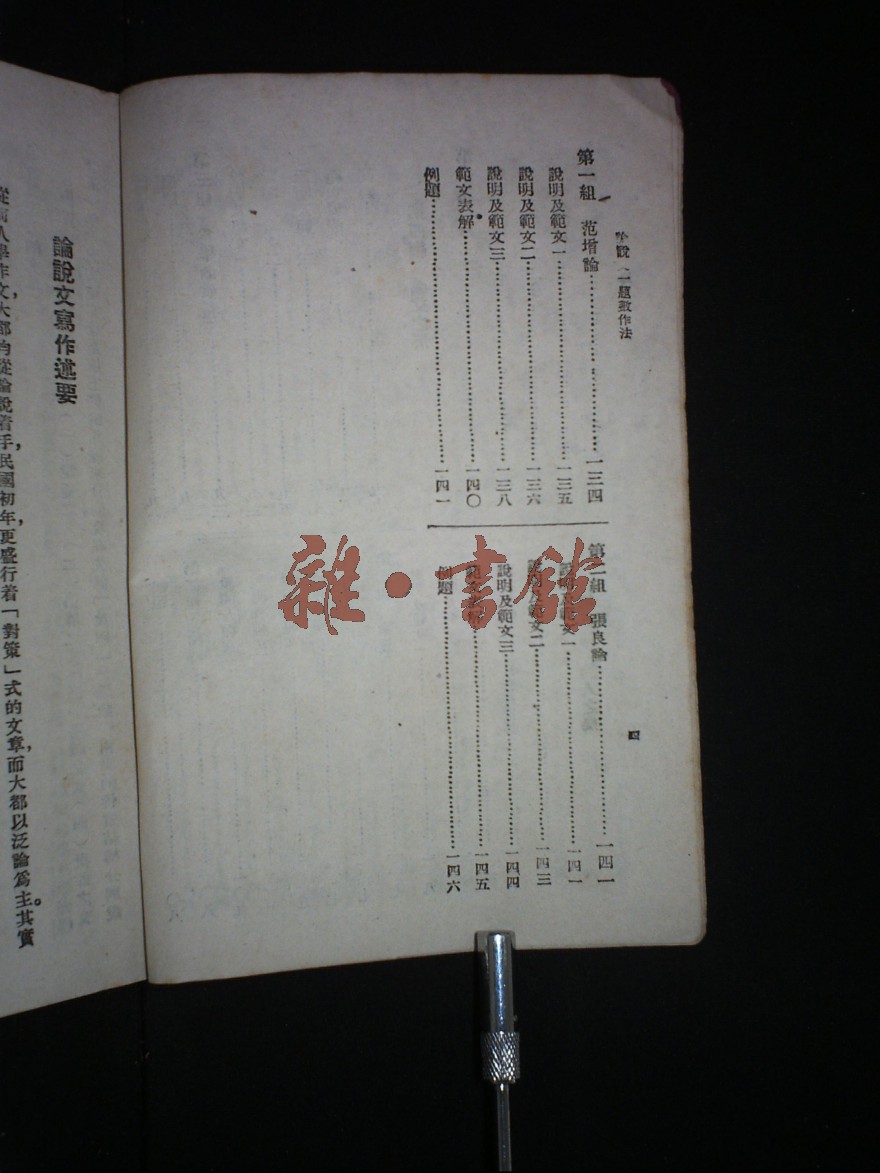 論說 一題數作法
第一組 范增論……一三四
說明及範文一……一三五
說明及範文二……一三六
說明及範文三……一三八
範文表解……一四〇
例題……一四一
第二組 張良論……一四一
說明及範文一……一四一
說明及範文二……一四三
說明及範文三……一四四
……一四五
例題……一四六
四
論說文寫作述要
從前人學作文,大都均從論說着手,民國初年,更盛行着「對策」式的文章,而大都以泛論爲主。其實
雜·書館